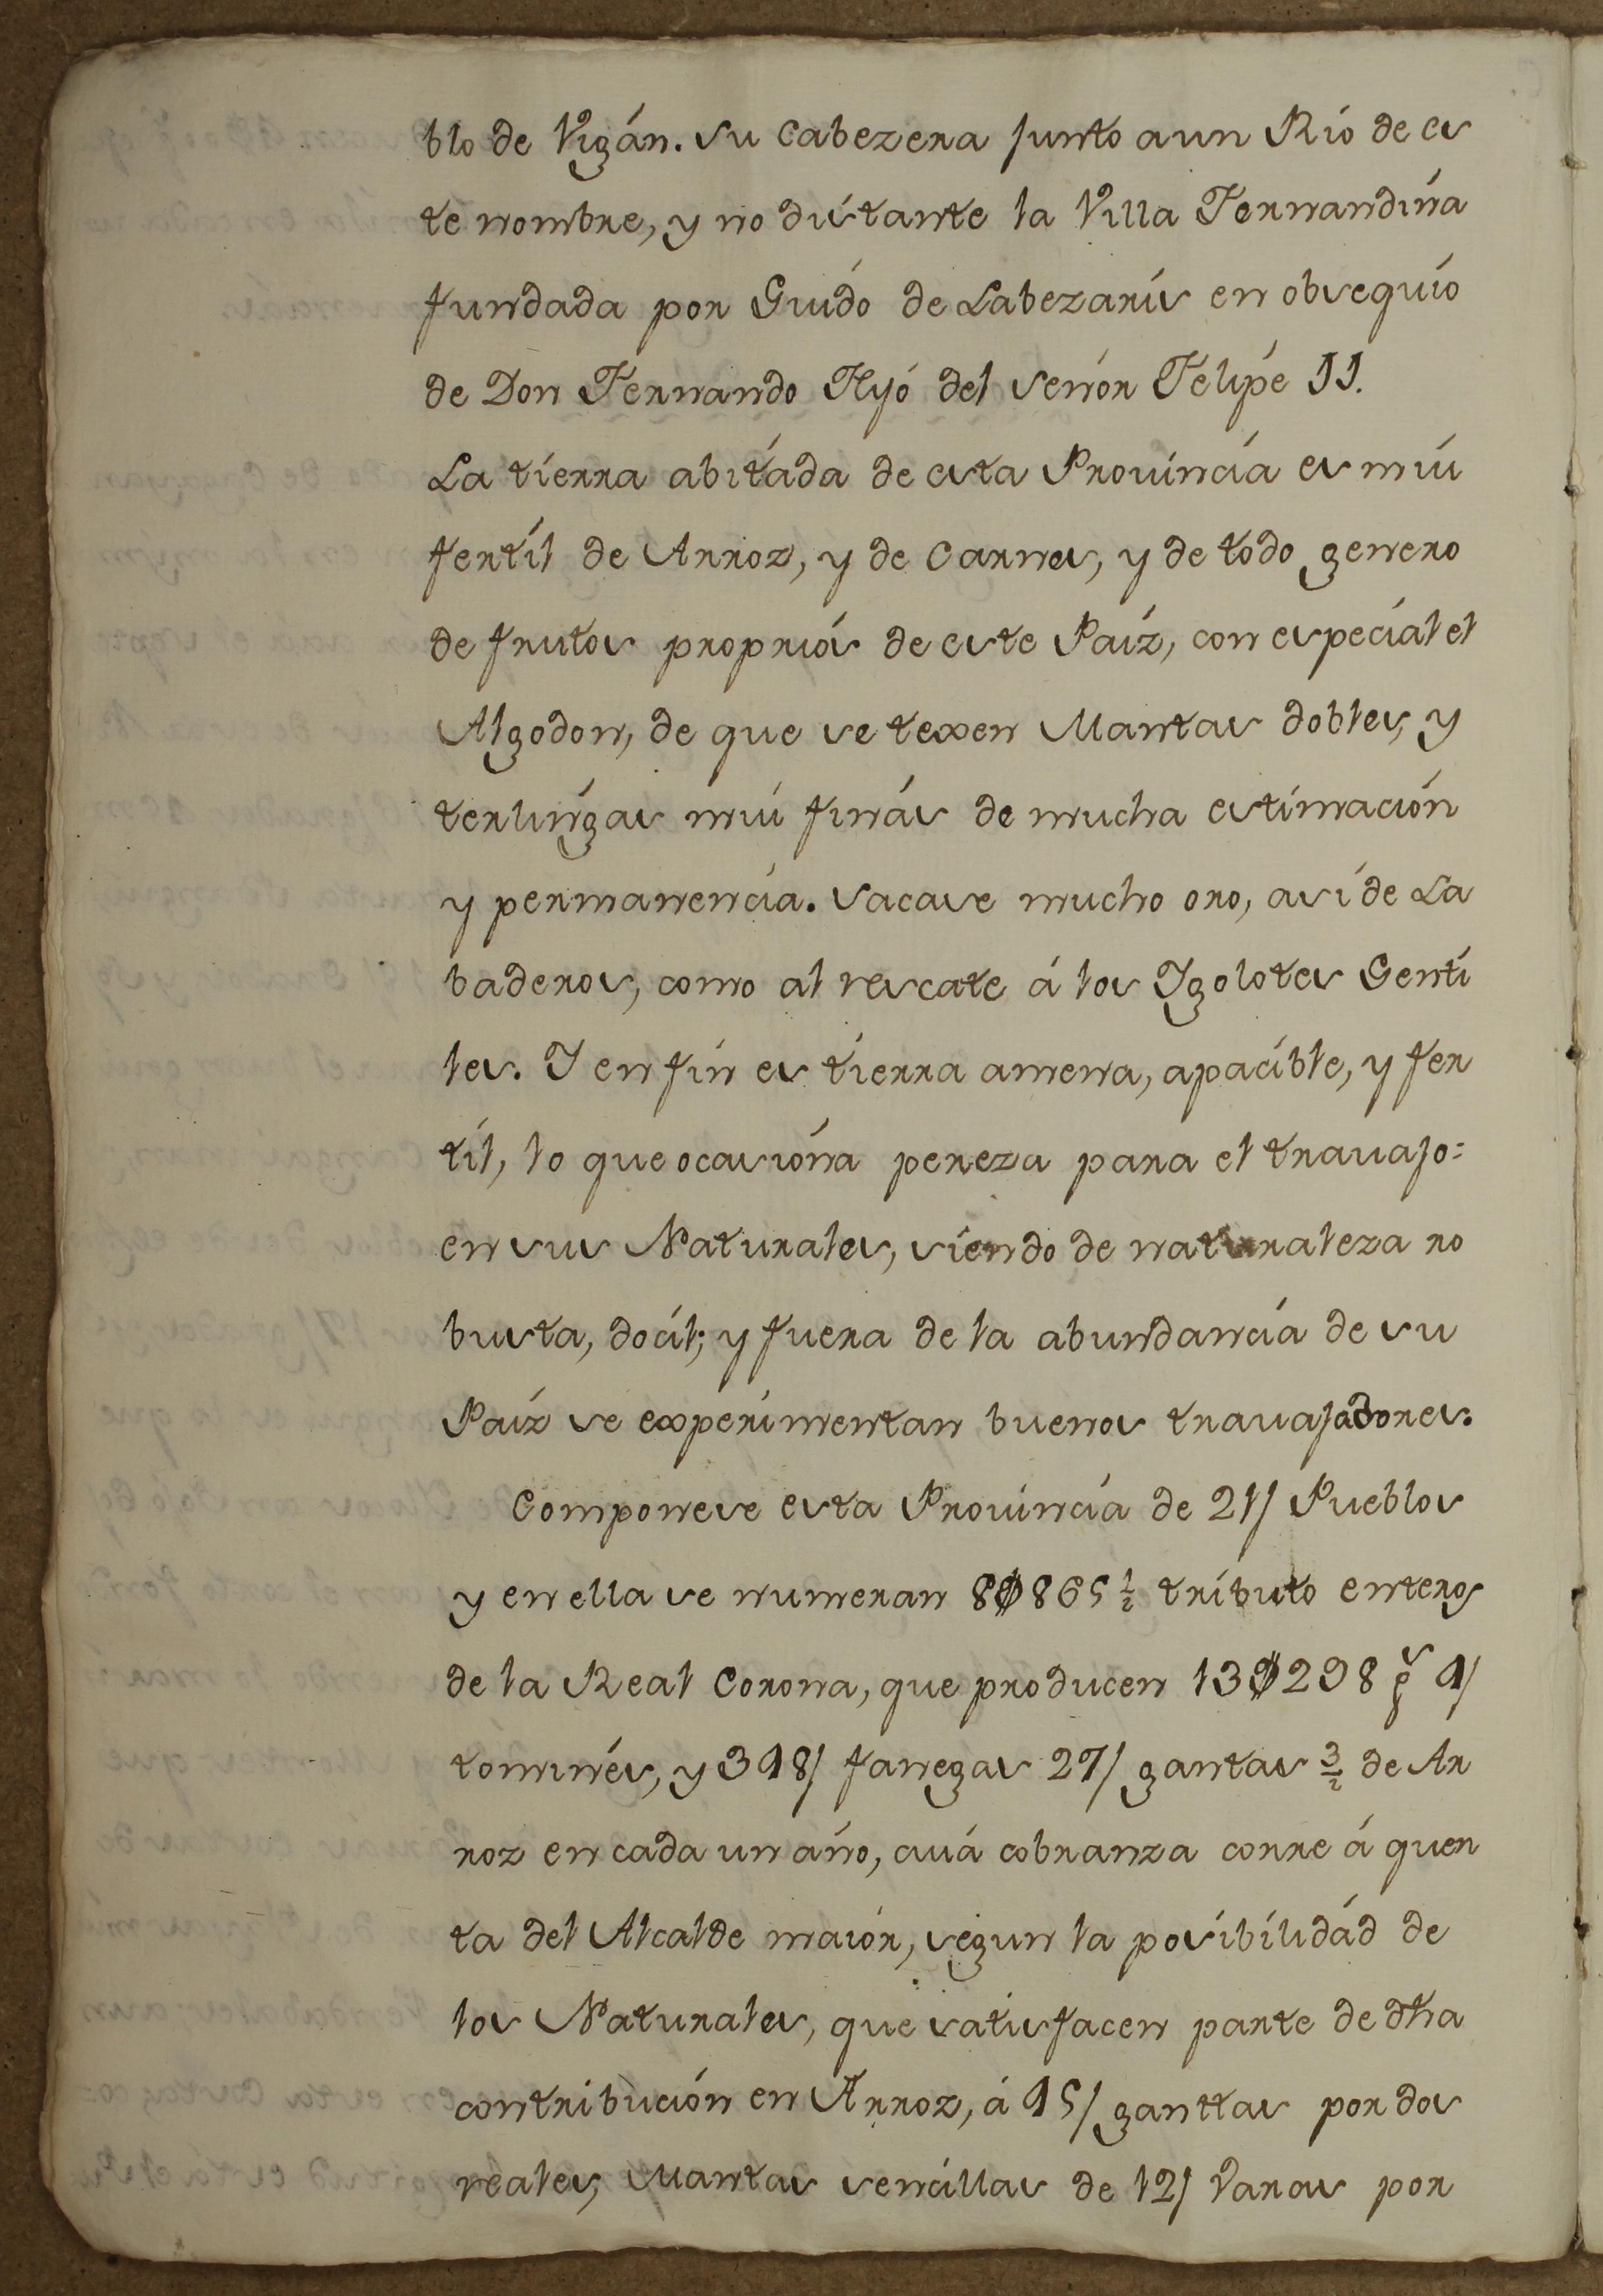 blo de Vigán. Su Cabezera junto a un Rio de es
te nombre, y no distante la Villa Fernandina
fundada por Guido de Labezaris en obsequio
de Don Fernando Hijo del Señor Felipe II.
La tierra abitada de esta Provincia es mui
fertil de Arroz, y de Carnes, y de todo genero
de frutos proprios de este Paiz, con especial el
Algodon, de que se texen Mantas dobles, y
terlingas mui finas de mucha estimación
y permanencia. Sacase mucho oro, asi de La
baderos, como al rescate á los Igolotes Genti
les. I en fin es tierra amena, apacible, y fer
til, lo que ocasiona pereza para el travajo=
en sus Naturales, siendo de naturaleza ro
busta, docil; y fuera de la abundancia de su
Paiz se experimentan buenos travajadores.
Componese esta Provincia de 21/ Pueblos
y en ella se numeran 8Ø865 1/2 tributo enteros
de la Real Corona, que producen 13Ø298 ps 4/
tomines, y 348/ fanegas 27/ gantas 3/2 de Ar
roz en cada un año, cuia cobranza corre á quen
ta del Alcalde maior, segun la posibilidád de
los Naturales, que satisfacen parte de dha
contribución en Arroz, á 45/ ganttas por dos
reales, Mantas sencillas de 12/ Varas por